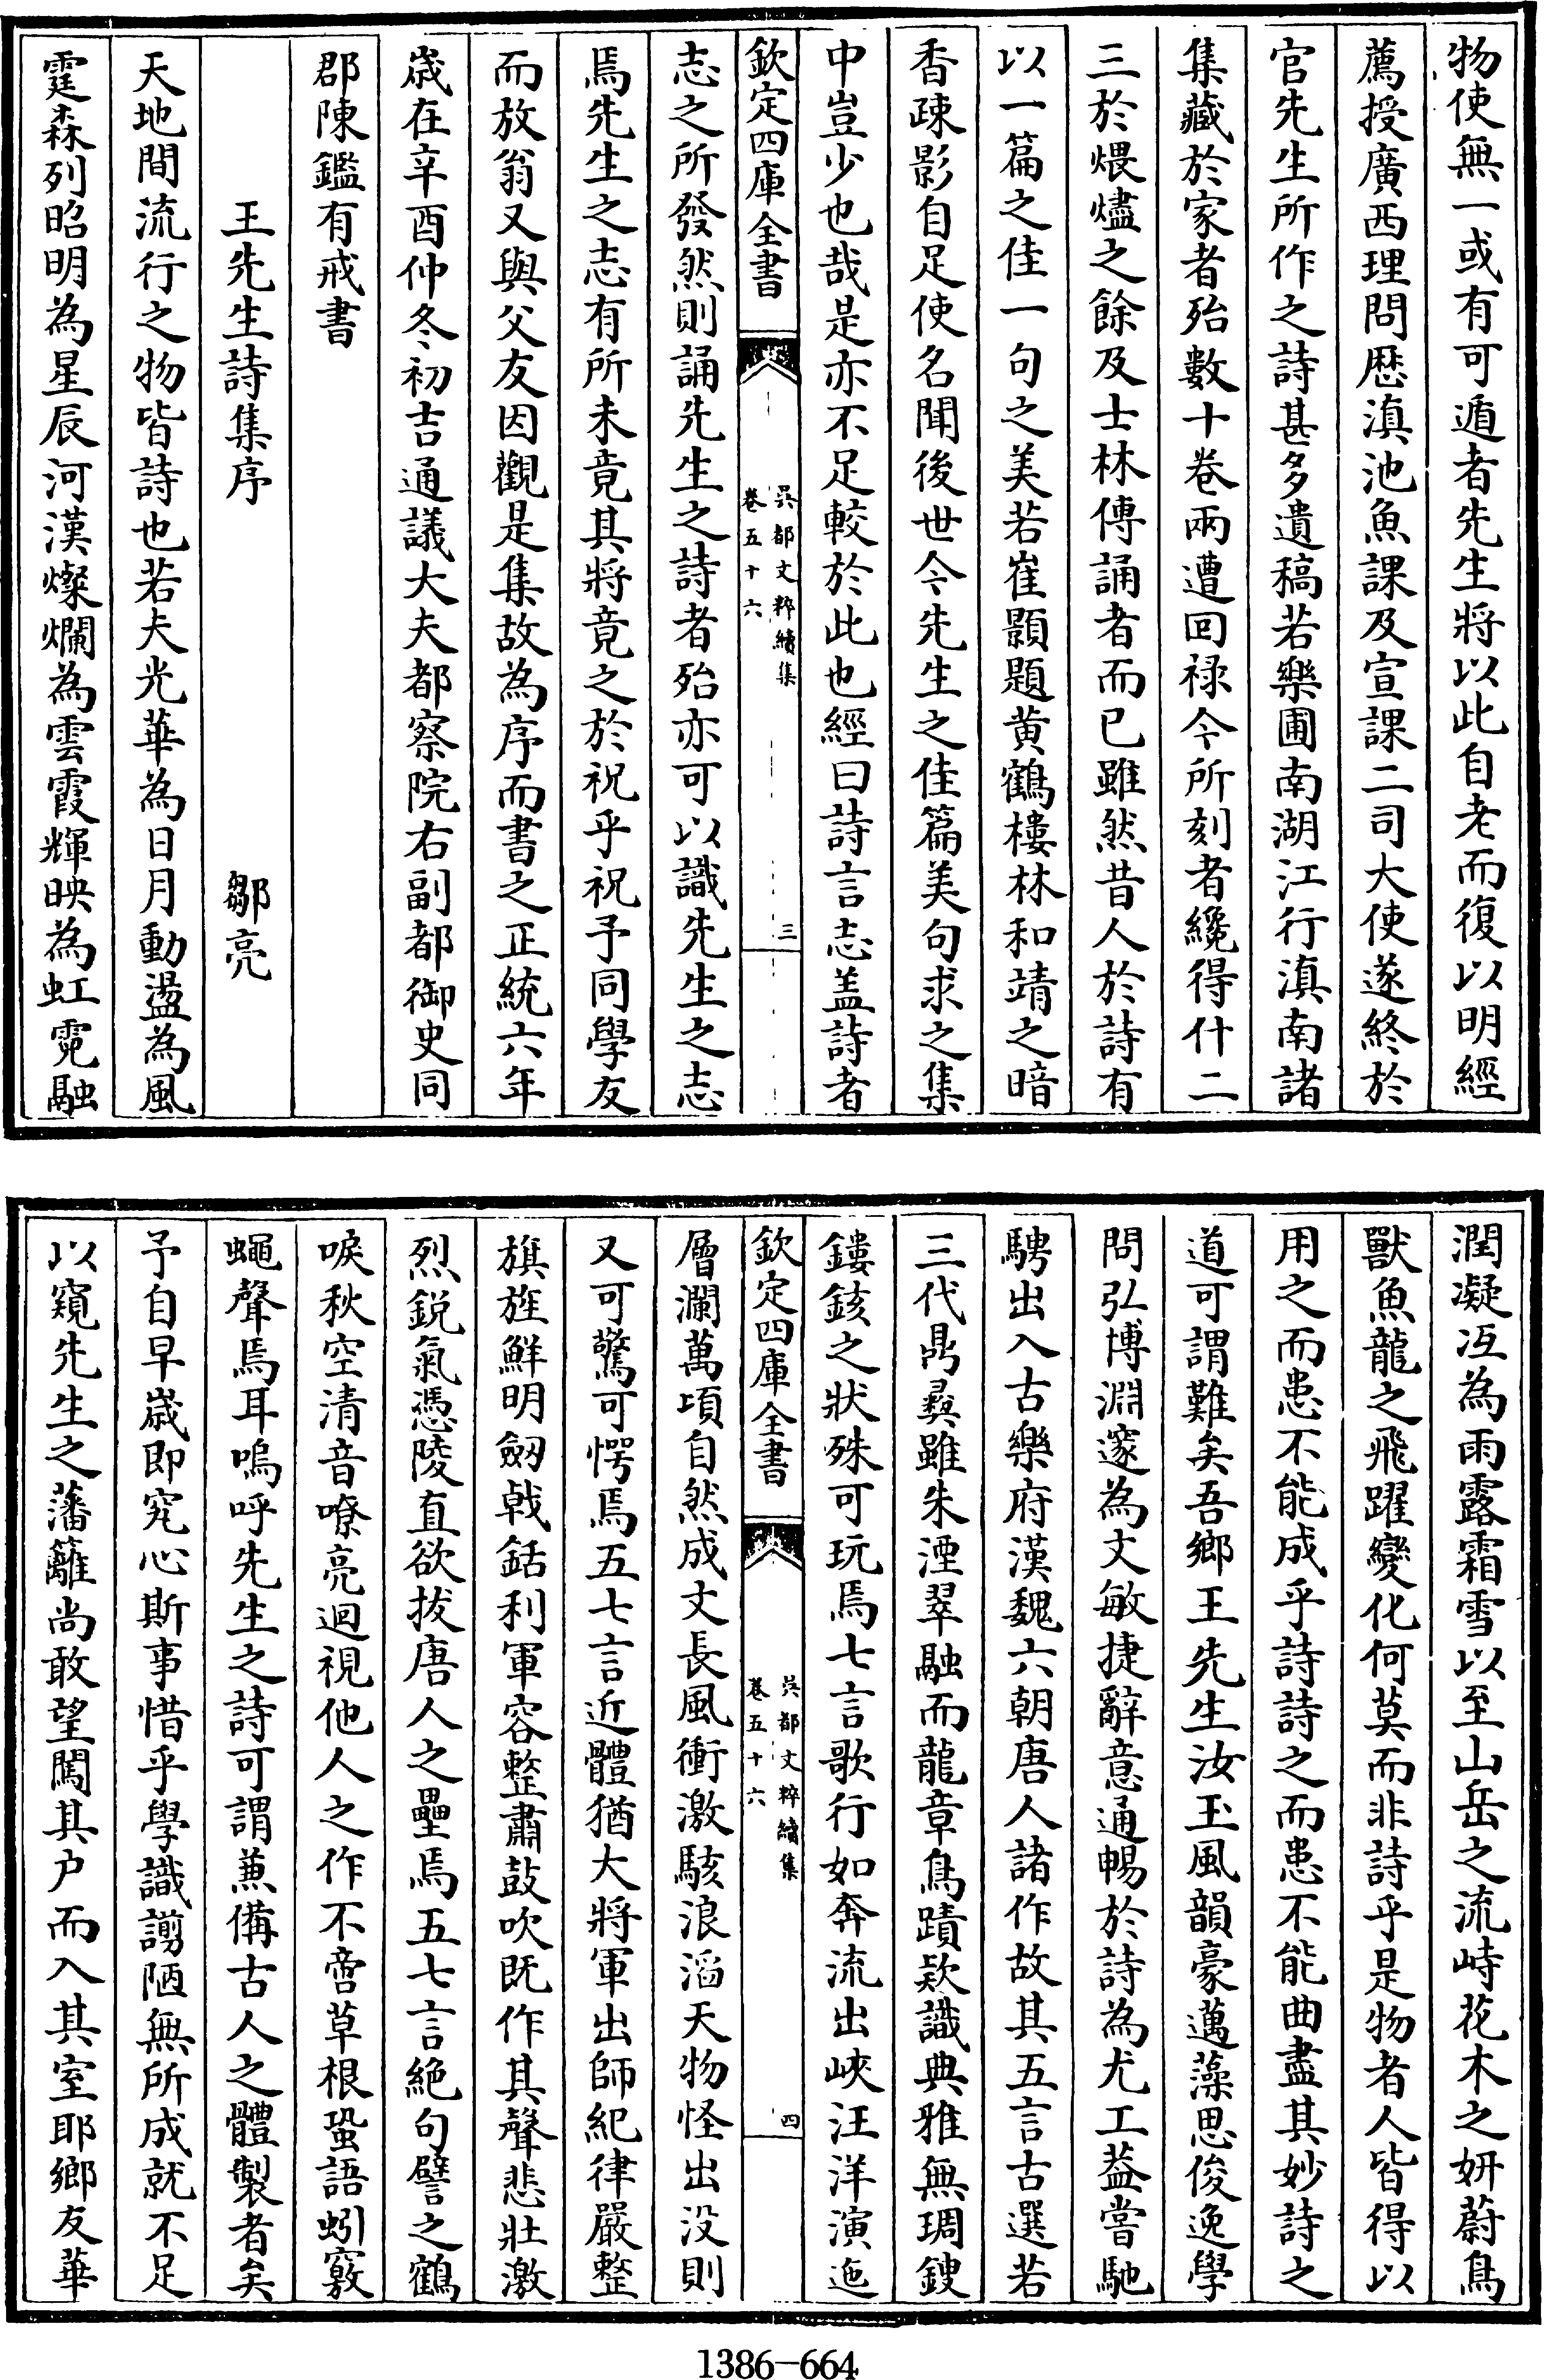 物使無一或有可遁者先生將以此自老而復以明經
薦授廣西理問厯滇池魚課及宣課二司大使遂終於
官先生所作之詩甚多遺稿若樂圃南湖江行滇南諸
集藏於家者殆數十卷兩遭回禄今所刻者纔得什二
三於煨燼之餘及士林傳誦者而已雖然昔人於詩有
以一篇之佳一句之美若崔顥題黄鶴樓林和靖之暗
香疎影自足使名聞後世今先生之佳篇美句求之集
中豈少也哉是亦不足較於此也經曰詩言志盖詩者
欽定四庫全書
吳都文粹續集
卷五十六
三
志之所發然則誦先生之詩者殆亦可以識先生之志
焉先生之志有所未竟其將竟之於祝乎祝予同學友
而放翁又與父友因觀是集故為序而書之正統六年
歳在辛酉仲冬初吉通議大夫都察院右副都御史同
郡陳鑑有戒書
王先生詩集序 鄒亮
天地間流行之物皆詩也若夫光華為日月動盪為風
霆森列昭明為星辰河漢燦爛為雲霞輝映為虹霓融
潤凝沍為雨露霜雪以至山岳之流峙花木之妍蔚鳥
獸魚龍之飛躍變化何莫而非詩乎是物者人皆得以
用之而患不能成乎詩詩之而患不能曲盡其妙詩之
道可謂難矣吾鄉王先生汝玉風韻豪邁藻思俊逸學
問弘博淵邃為文敏捷辭意通暢於詩為尤工葢嘗馳
騁出入古樂府漢魏六朝唐人諸作故其五言古選若
三代鼎彞雖朱湮翠融而龍章鳥蹟欵識典雅無琱鎪
鏤鋟之狀殊可玩焉七言歌行如奔流出峽汪洋演迤
欽定四庫全書
吳都文粹續集
卷五十六
四
層瀾萬項自然成文長風衝激駭浪滔天物怪出没則
又可驚可愕焉五七言近體猶大將軍出師紀律嚴整
旗旌鮮明劔戟銛利軍容整肅鼓吹既作其聲悲壯激
烈鋭氣憑陵直欲拔唐人之壘焉五七言絶句譬之鶴
唳秋空清音嘹亮迴視他人之作不啻草根蛩語蚓竅
蠅聲焉耳嗚呼先生之詩可謂蕪備古人之體製者矣
予自早歳即究心斯事惜乎學識謭陋無所成就不足
以窺先生之藩籬尚敢望闖其户而入其室耶鄉友華
1386-664